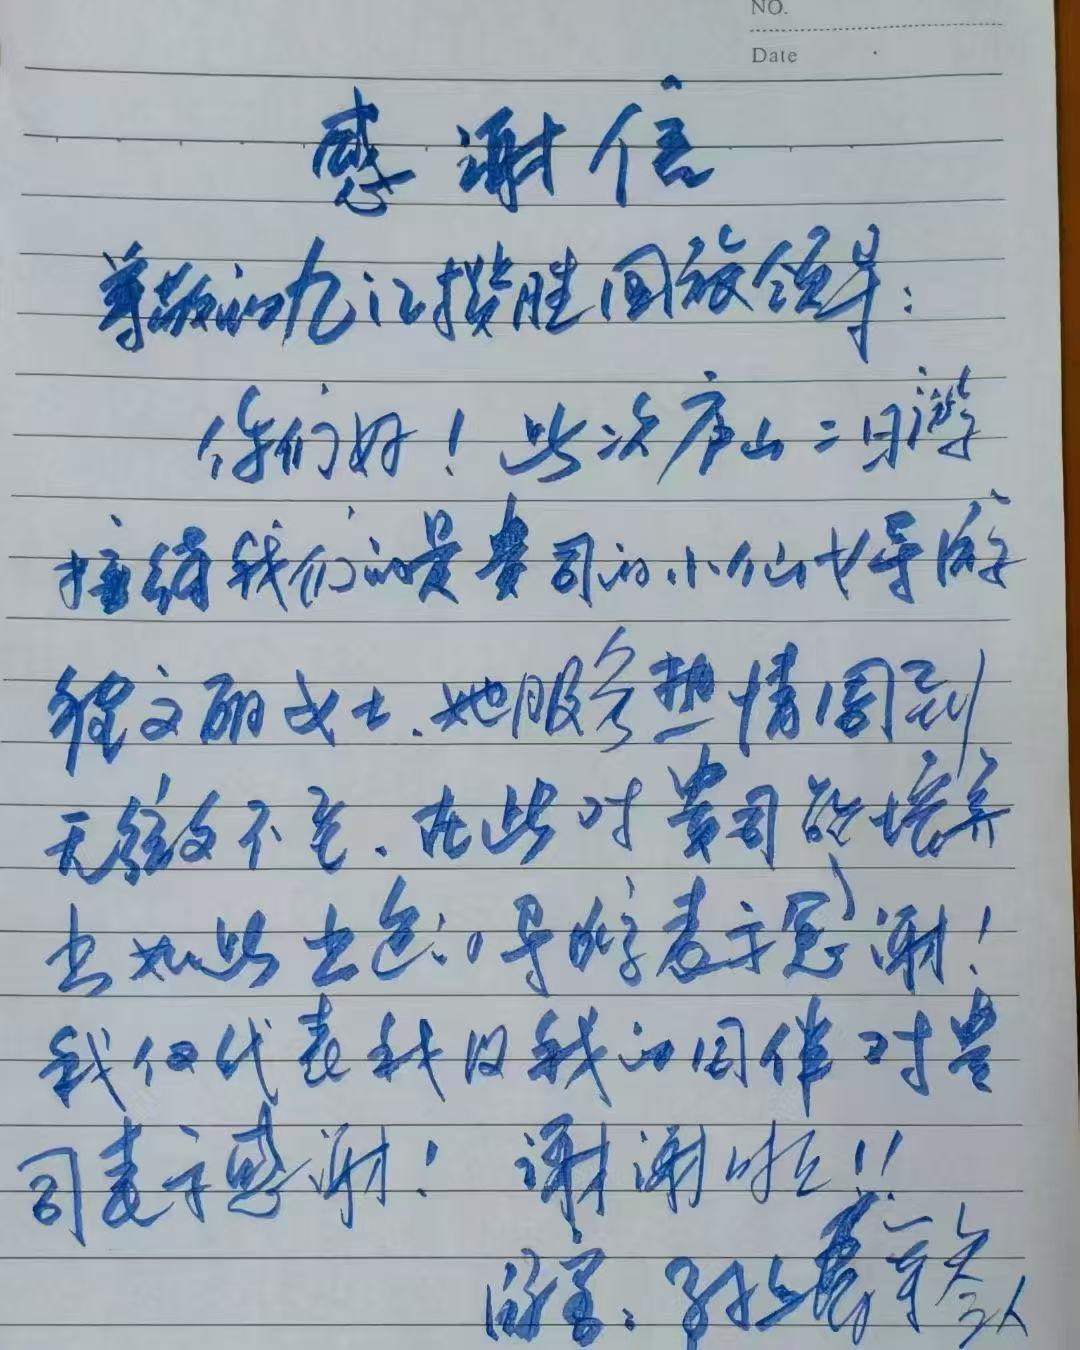 NO.
Date
感谢信
尊敬的九江揽胜国旅领导：
你们好！此次庐山二日游
接待我们的是贵司的小仙女导游
文丽女士.她服务热情周到
无微不至、在此对贵司能培养
出如此出色的导游表示感谢！
我仅代表我及我的同伴对贵
司表示感谢！ 谢谢啦！！
游客：